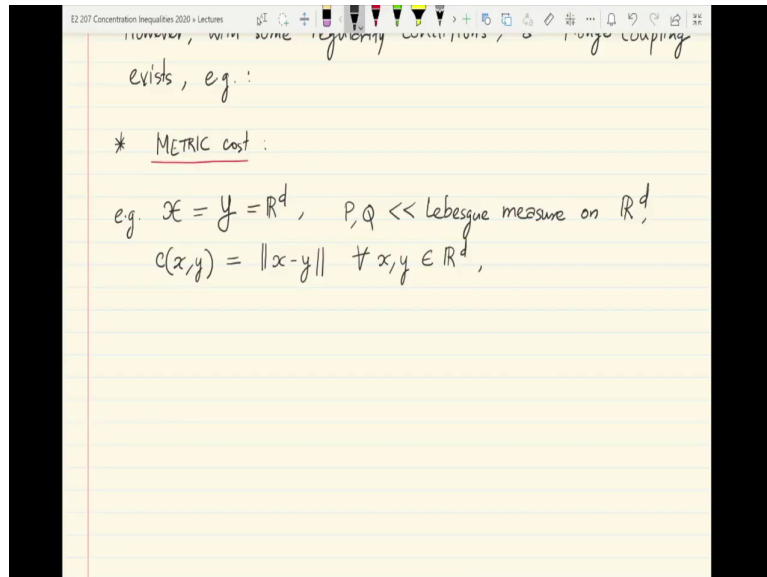 E2 207 Concentration Inequalities 2020 » Lectures
However, with some regularity conditions, a Monge coupling
exists, e.g.:
* METRIC cost:
e.g. 𝒳 = 𝒴 = ℝᵈ, P,Q << Lebesgue measure on ℝᵈ,
c(x,y) = ||x-y|| ∀ x,y ∈ ℝᵈ,